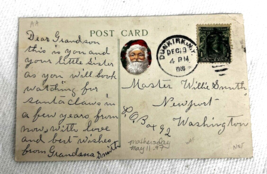 POST CARD
Dear Grandson
this is you and
your little sister
as you will look
watching for
santa claus in
a few years from
now with love
and best wishes
from Grandma Smith
DUNKIRK, N.Y.
DEC 
4 PM
Master Willie Smith
Newport
L Box 92
Washington